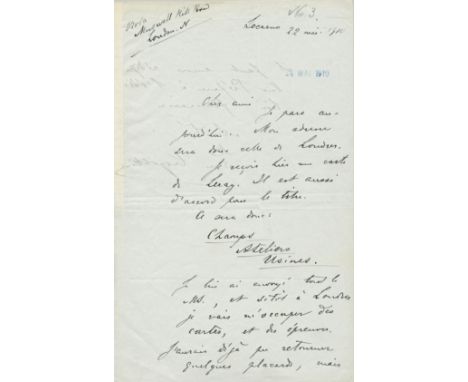 Muswell Hill Road
London. N
Locarno
22 mai
Cher ami
Je pars au-
jourd'hui. Mon adresse
sera donc celle de Londres.
Je reçois hier une carte
de Leroy. Il est aussi
d'accord pour le titre.
Ce sera donc:
Champs
Ateliers
Usines.
Je lui ai envoyé tout le
MS., et sitôt à Londres
je vais m'occuper des
cartes, et des épreuves.
J'aurais déjà pu retourner
quelques placards, mais